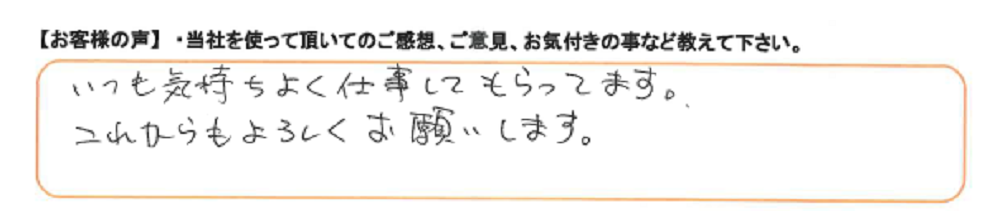 【お客様の声】・当社を使って頂いてのご感想、ご意見、お気付きの事など教えて下さい。
いつも気持ちよく仕事してもらってます。
これからもよろしくお願いします。